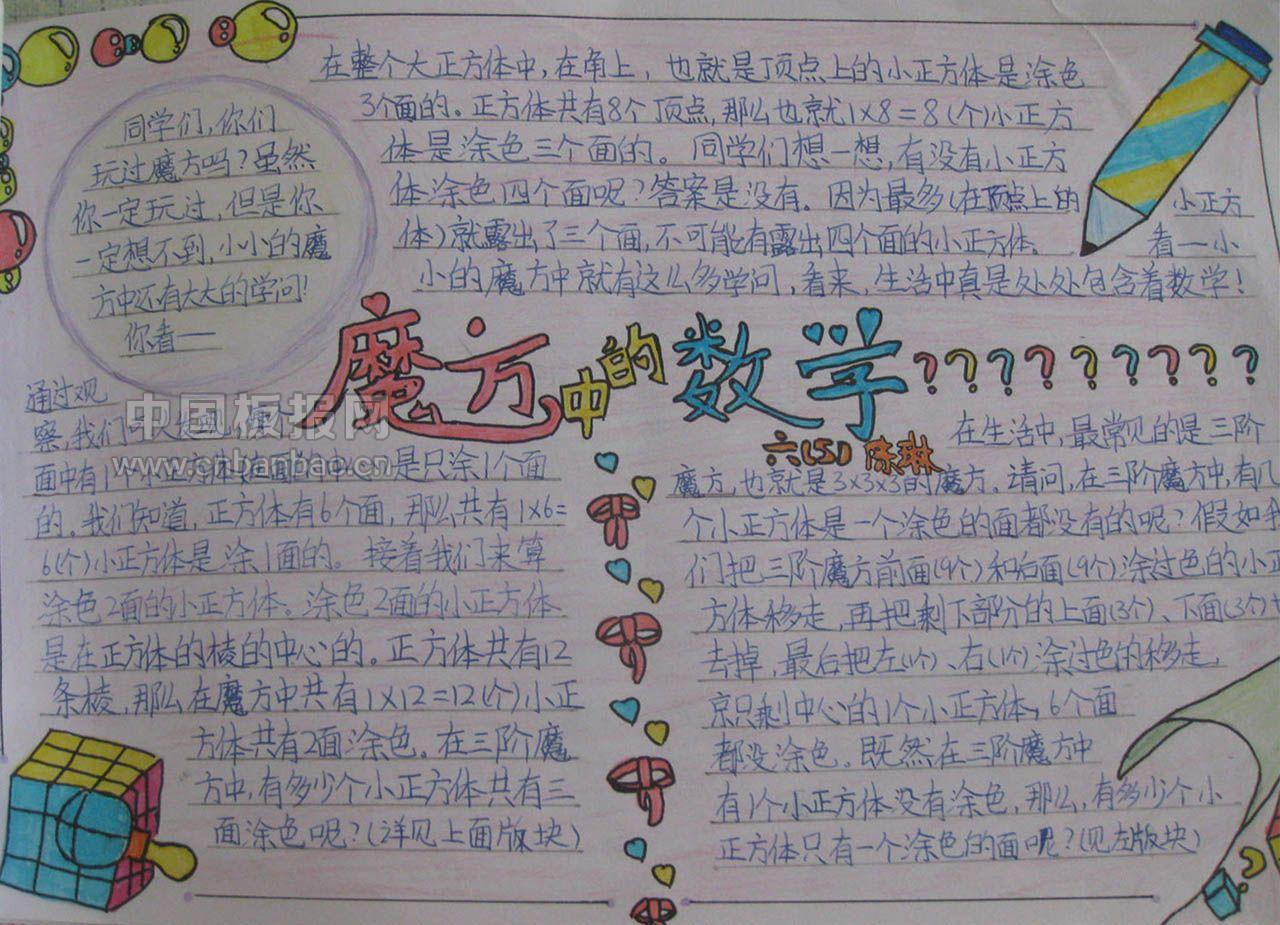 同学们,你们
玩过魔方吗?虽然
你一定玩过,但是你
一定想不到,小小的魔
方中还有大大的学问!
你看一
魔方中的数学?????????
六(5) 陈琳
在生活中,最常见的是三阶
魔方,也就是3×3×3的魔方。请问,在三阶魔方中,有几
个小正方体是一个涂色的面都没有的呢?假如我
们把三阶魔方前面(9个)和后面(9个)涂过色的小正
方体移走,再把剩下部分的上面(3个)、下面(3个)
去掉,最后把左(1个)、右(1个)涂过色的移走,
就只剩中心的1个小正方体,6个面
都没涂色。既然在三阶魔方中
有1个小正方体没有涂色,那么,有多少个小
正方体只有一个涂色的面呢?(见左版块)
通过观
察,我们
面中有1个
是只涂1个面
的。我们知道,正方体有6个面,那么共有1×6=
6(个)小正方体是涂1面的。接着我们来算
涂色2面的小正方体。涂色2面的小正方体
是在正方体的棱的中心的。正方体共有12
条棱,那么在魔方中共有1×12=12(个)小正
方体共有2面涂色。在三阶魔
方中,有多少个小正方体共有三
面涂色呢?(详见上面版块)
在整个大正方体中,在角上,也就是顶点上的小正方体是涂色
3个面的。正方体共有8个顶点,那么也就1×8=8(个)小正方
体是涂色三个面的。同学们想一想,有没有小正方
体涂色四个面呢?答案是没有。因为最多(在顶点上的 小正方
体)就露出了三个面,不可能有露出四个面的小正方体。 看一小
小的魔方中就有这么多学问,看来,生活中真是处处包含着数学!
中国板报网
www.cnbanbao.cn